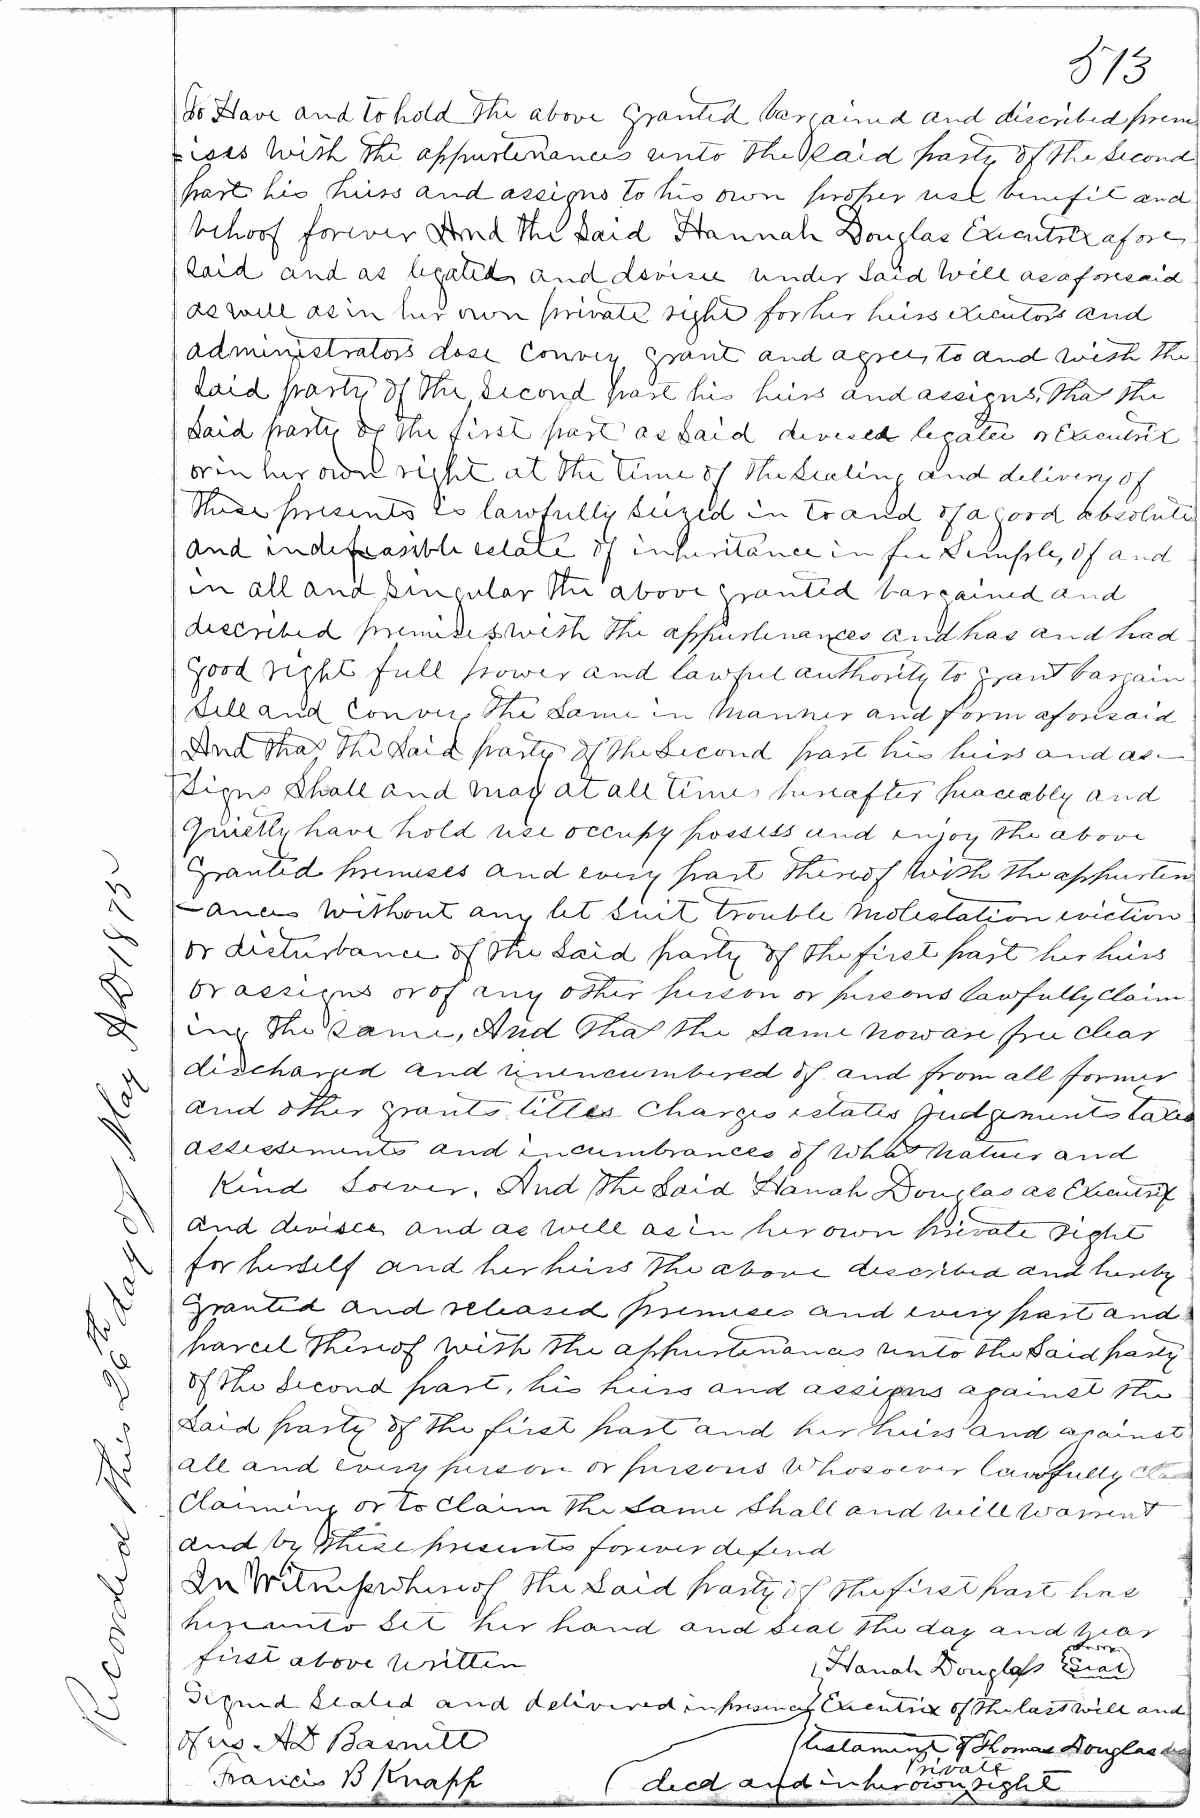 513
To Have and to hold the above granted bargained and discribed prem
=ises with the appurtenances unto the said party of the Second
part his heirs and assigns to his own proper use benefit and
behoof forever And the Said Hannah Douglas Executrix afore
said and as legatee and devisee under Said Will as aforesaid
as well as in her own private right for her heirs executors and
administrators dose convey grant and agree, to and with the
Said party of the Second part his heirs and assigns, that the
Said party of the first part as Said devisea legatee or Executrix
or in her own right at the time of the Sealing and delivery of
these presents is lawfully Seized in to and of a good absolute
and indefeasible estate of inheritance in fee Simple, of and
in all and Singular the above granted bargained and
described premises with the appurtenances and has and had
good right full power and lawful authority to grant bargain
Sell and Convey the Same in manner and form aforesaid
And that the Said party of the Second part his heirs and as-
signs Shall and may at all times hereafter peaceably and
quietly have hold use occupy possess and enjoy the above
granted premises and every part thereof with the appurten
-ances without any let Suit trouble molestation eviction
or disturbance of the Said party of the first part her heirs
or assigns or of any other person or persons lawfully claim
ing the same, And that the Same now are free clear
discharged and unencumbered of and from all former
and other grants titles charges estates judgements taxes
assessements and incumbrances of what natuer and
Kind Soever. And the Said Hanah Douglas as Executrix
and devisee and as well as in her own private right
for herself and her heirs the above described and hereby
granted and released premises and every part and
parcel thereof with the appurtenances unto the Said party
of the Second part, his heirs and assigns against the
Said party of the first part and her heirs and against
all and every person or persons whosoever lawfully cla
claiming or to claim the Same Shall and will warrent
and by these presents forever defend
In Witness whereof the Said party of the first part has
hereunto Set her hand and Seal the day and year
first above written
Hanah Douglass Seal
Signed Sealed and delivered in presence
Executrix of the last will and
of us A D Basnitt
testament of Thomas Douglas
Francis B Knapp
decd and in her own Private right
Recorded this 26th day of May AD 1875